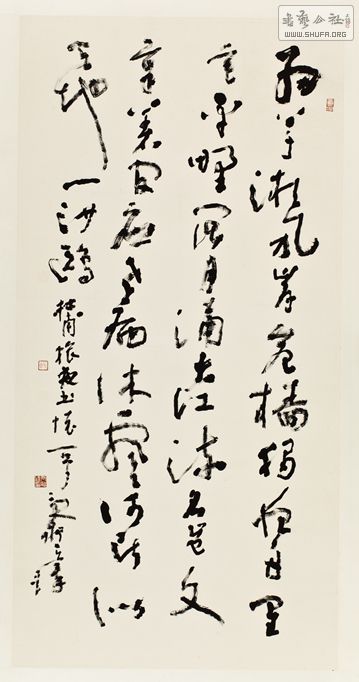 書藝公社
WWW.SHUFA.ORG
細草微風岸危檣獨夜舟星
垂平野闊月涌大江流名豈文
章著官應老病休飄飄何所似
天地一沙鷗
杜甫旅夜書懷一首